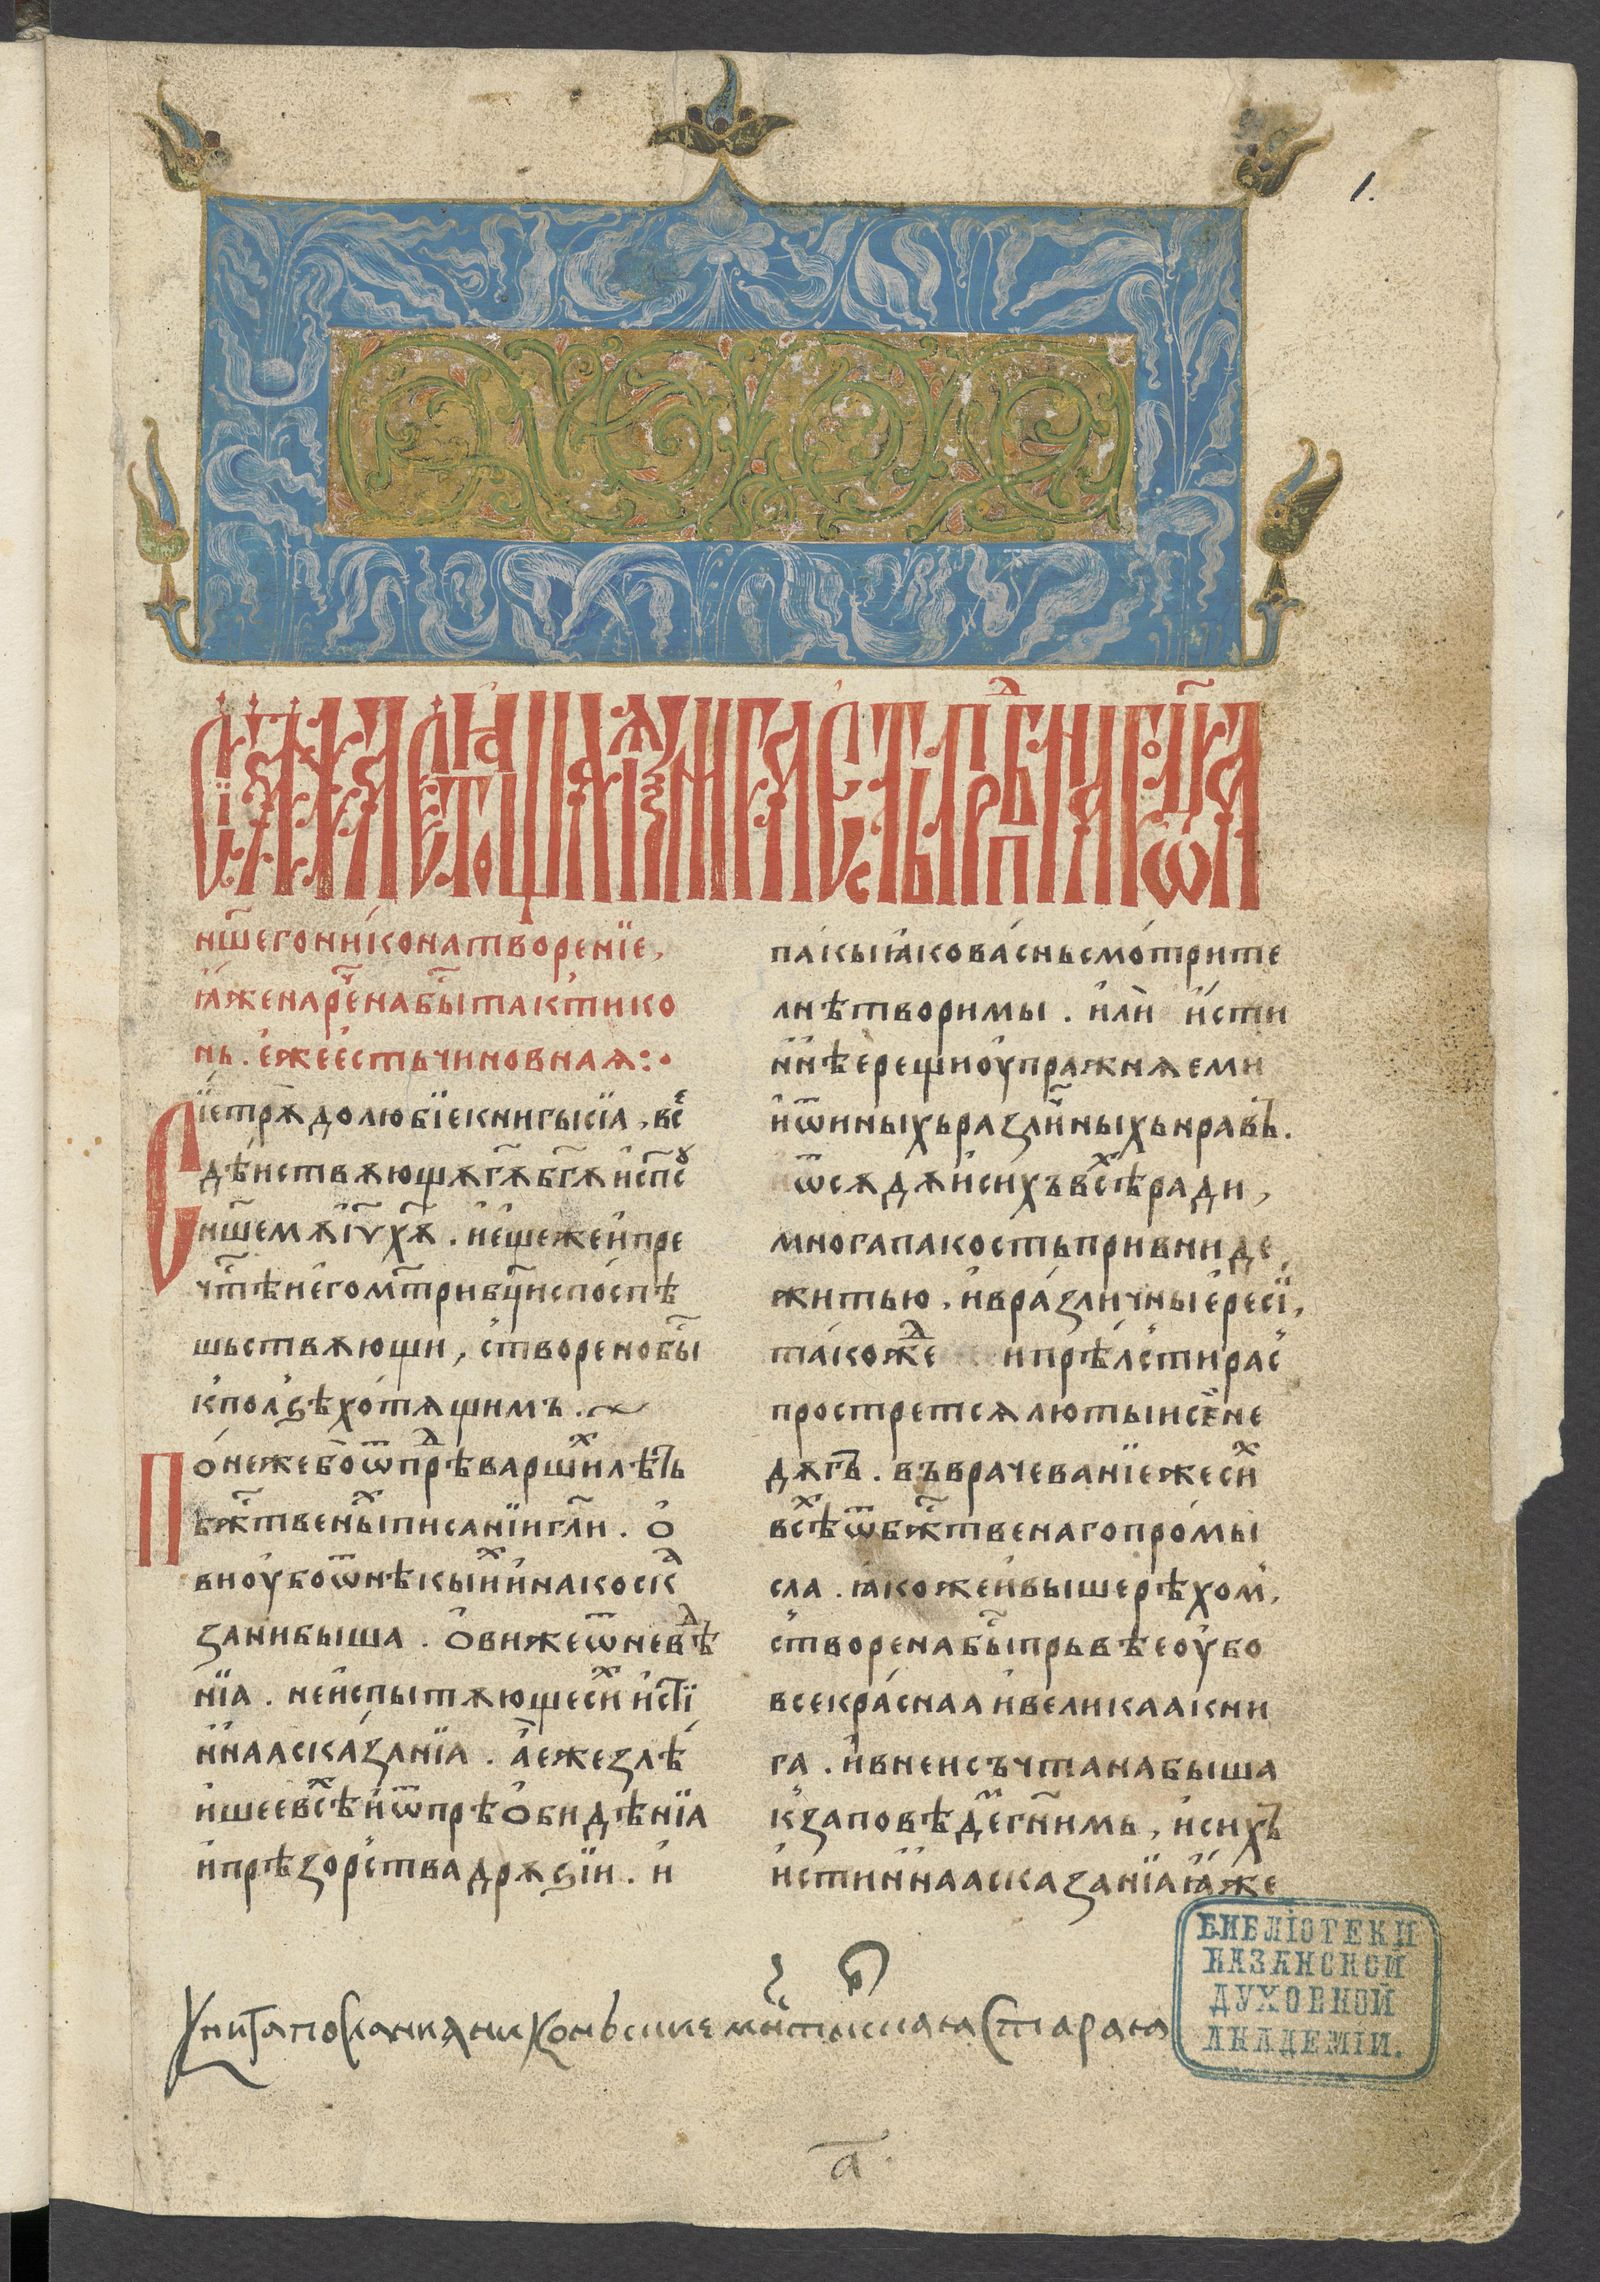 1.
нш҃егони́конатворенїе,
ꙗ҆́женарⷱ҇е́набы́тактико
нь. є҆жеє҆стьчиновнаѧ:·
Сїетрѫдолюбїекнигысїа, всⷺ
дѣиствѫющѫгѫ҃бг҃ѫи҆сп҃сꙋ
нш҃емѫі҆ѵ҃хꙋ҃. и҆є҆щежеи҆пре
чт҃ѣиє҆гомт҃рибц҃испо́спѣ
шьствѫющи, ство́ренобы́
кполѕѣхотѧщимъ.
По́нежебоѿпрⷣѣваршиⷯлѣтъ
бж҃твеныⷯписанїигл҃и. ѻ҆
виоу҆боѿнѣкыиⷯи҆накоскⷶ
заниꙑша. Ѻ҆вижеѿневⷣѣ
нїа. неи҆спытѫющесиⷯи҆стї
ннааска́занїа. а҆ежезлѣ
ишеевсⷯѣи҆ѿпрѣѻ҆бидѣнїа
и҆прѣзорствадрѫѕїи. и҆
па́кыꙗ҆кова́сньсмо́трите
лнѣтворимы. и҆лѝ и҆сти
ннѣересиоу҆пражнѧеми
и҆ѿиныхьразлиⷱ҇ныхьнравъ.
ѿсѫдѫи҆сихъвсⷯѣради,
многапакостьпривниде
житью, и҆вра́зличныє҆ресї,
та́кожⷣе ипрѣлстирас
простретсѧлютыисе́не
дѫгъ. въврачеванїежесиⷯ
всⷯѣѿбж҃твенагопромы
сла. ꙗ҆кожеи҆вышерѣхом,
створенабы́прьвѣеоу҆бо
всекра́снааи҆великаакни
га. и҆внеисъчтанабыша
кзаповѣдⷨегн҃имь, и҆сихъ
и҆стиннаасказанїаꙗ҆же
БИБЛІОТЕКИ
КАЗАНСКОЙ
ДУХОВНОЙ
АКАДЕМІИ.
а҃